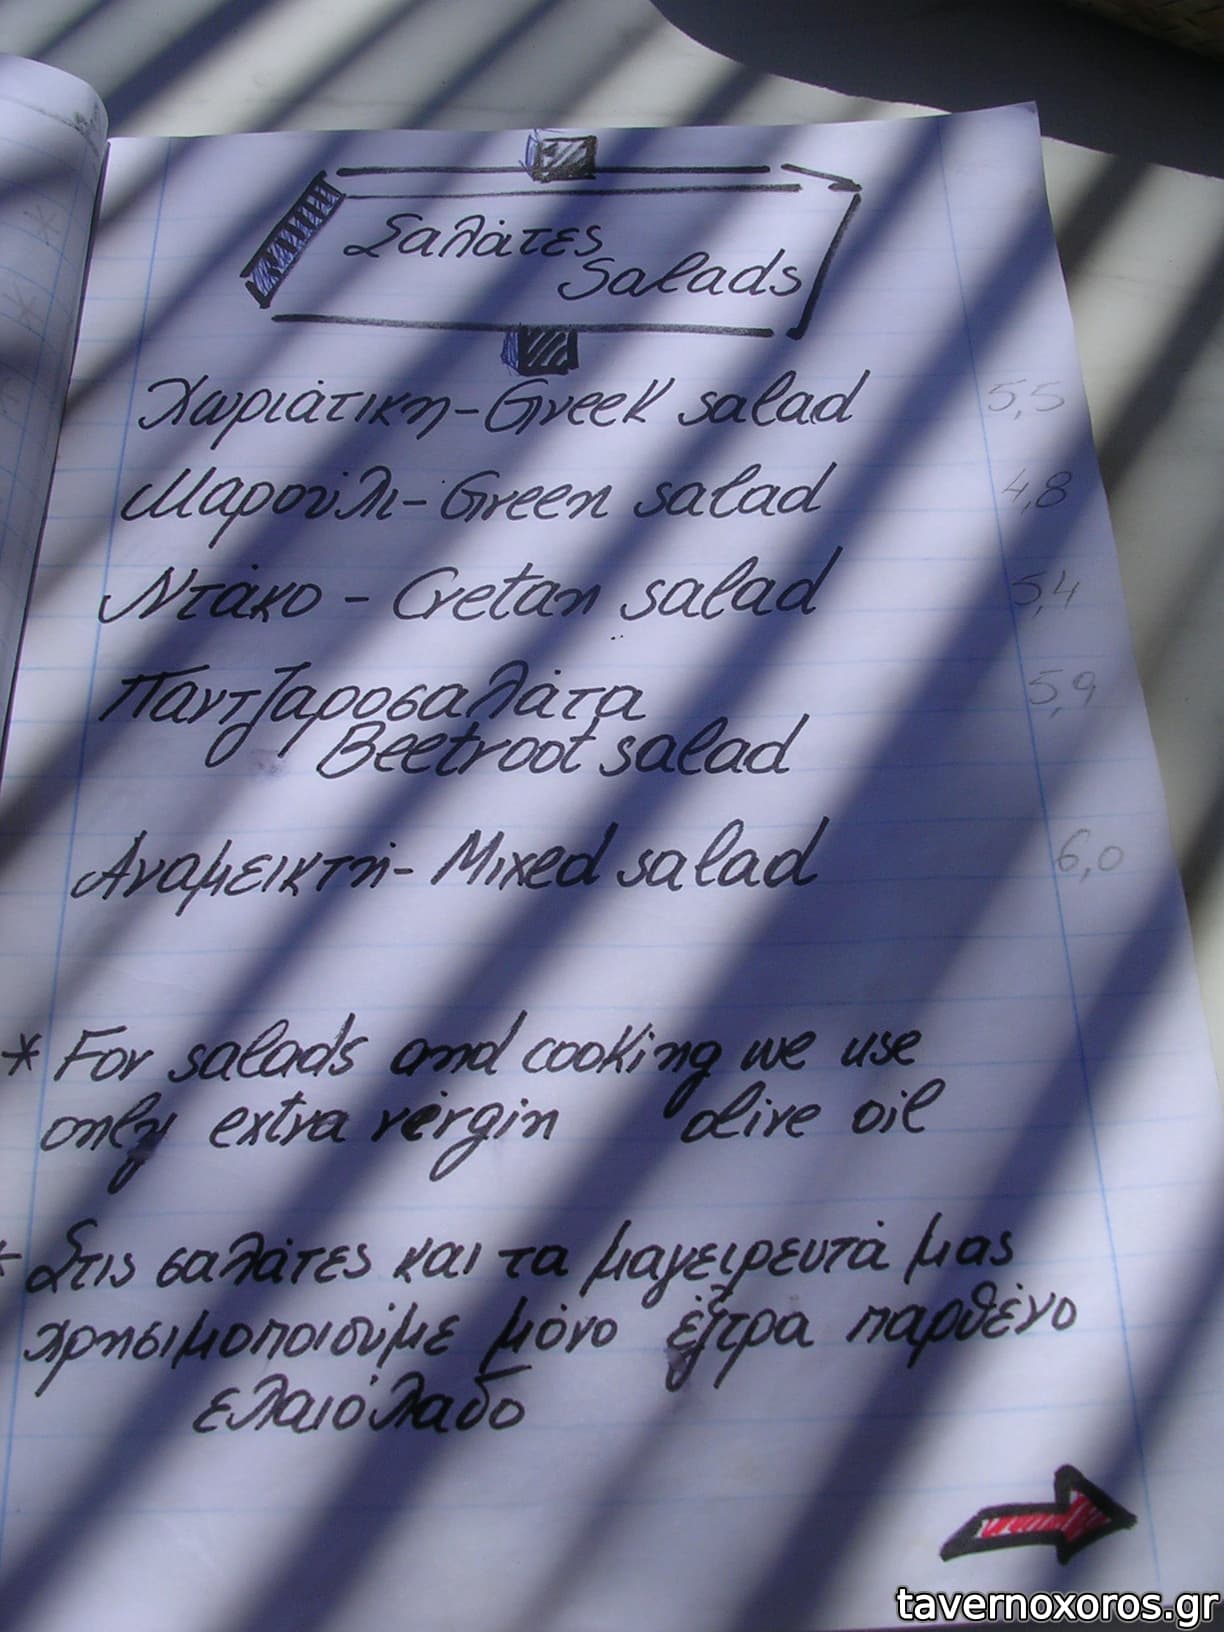 Σαλάτες
Salads
Χωριάτικη - Greek salad 5,5
Μαρούλι - Green salad 4,8
Ντάκο - Cretan salad 5,4
Παντζαροσαλάτα 5,9
Beetroot salad
Αναμεικτή - Mixed salad 6,0
* For salads and cooking we use
only extra virgin olive oil
* Στις σαλάτες και τα μαγειρευτά μας
χρησιμοποιούμε μόνο έξτρα παρθένο
ελαιόλαδο
tavernoxoros.gr